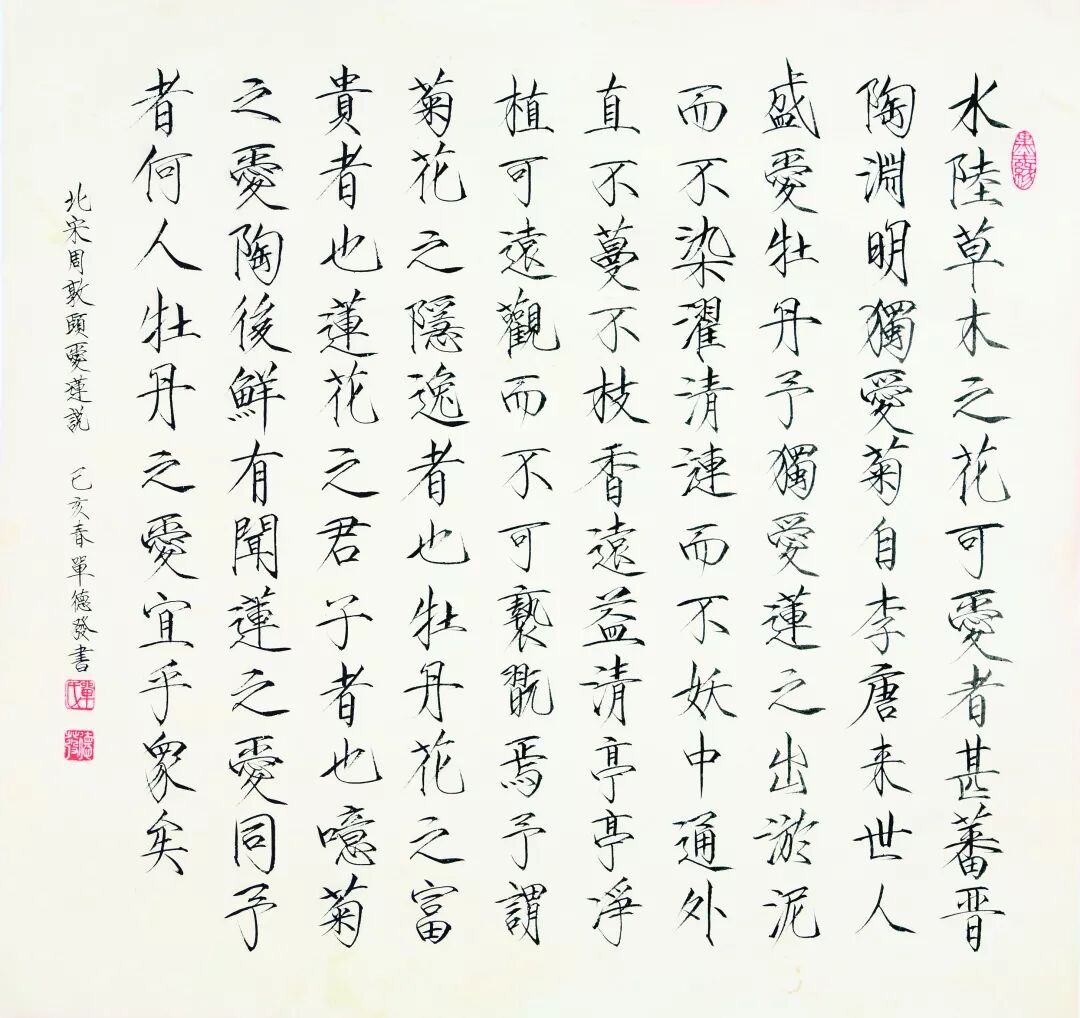 水陸草木之花可愛者甚蕃晉
陶淵明獨愛菊自李唐来世人
盛愛牡丹予獨愛蓮之出淤泥
而不染濯清漣而不妖中通外
直不蔓不枝香遠益清亭亭淨
植可遠觀而不可褻翫焉予謂
菊花之隱逸者也牡丹花之富
貴者也蓮花之君子者也噫菊
之愛陶後鮮有聞蓮之愛同予
者何人牡丹之愛宜乎衆矣
北宋周敦頤愛蓮説 己亥春單德發書
單氏
德發